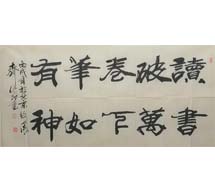 讀書
破萬
卷下
筆如
有神
丙戌